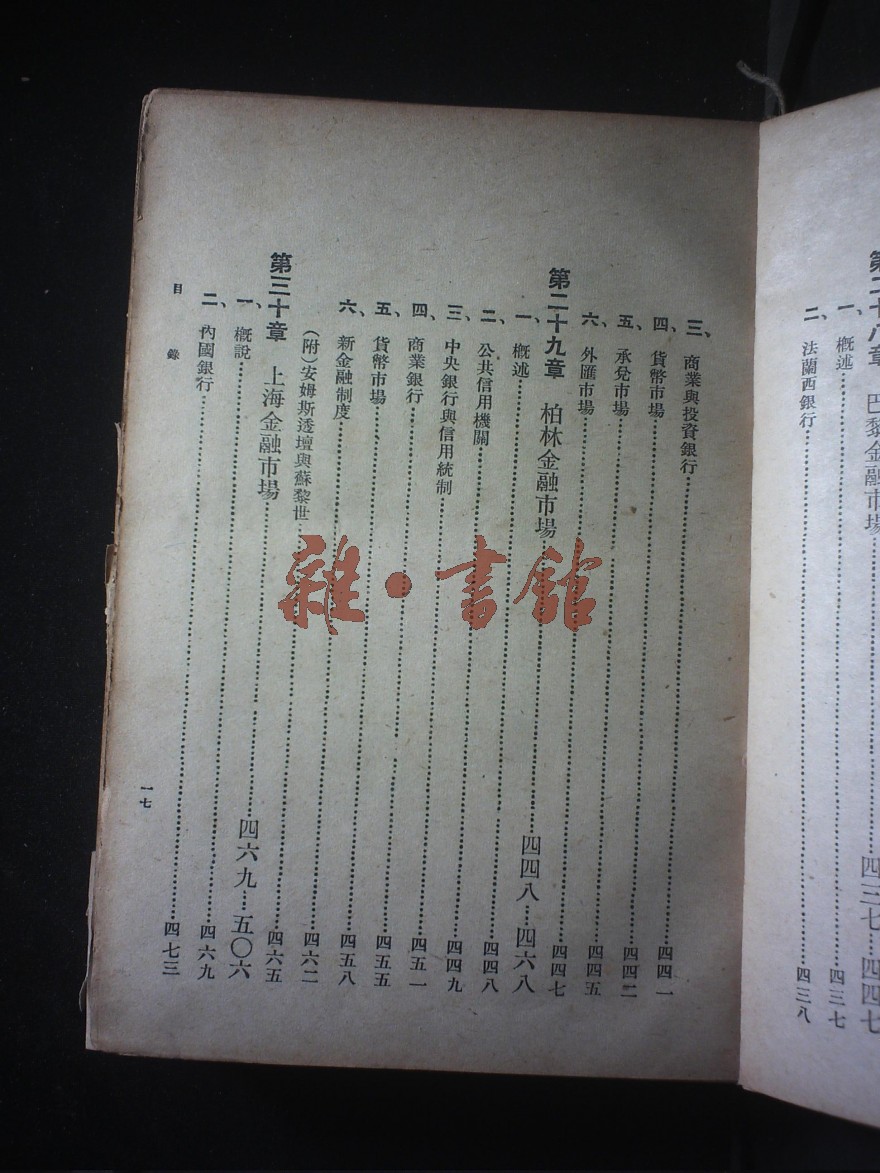 第二十八章 巴黎金融市場……四三七…四四七
一、概述……四三七
二、法蘭西銀行……四三八
三、商業與投資銀行……四四一
四、貨幣市場……四四二
五、承兌市場……四四五
六、外匯市場……四四七
第二十九章 柏林金融市場……四四八…四六八
一、概述……四四八
二、公共信用機關……四四九
三、中央銀行與信用統制……四五一
四、商業銀行……四五五
五、貨幣市場……四五八
六、新金融制度……四六二
(附)安姆斯透壇與蘇黎世……四六五
第三十章 上海金融市場……四六九…五〇六
一、概說……四六九
二、內國銀行……四七三
目錄
一七
雜·書館